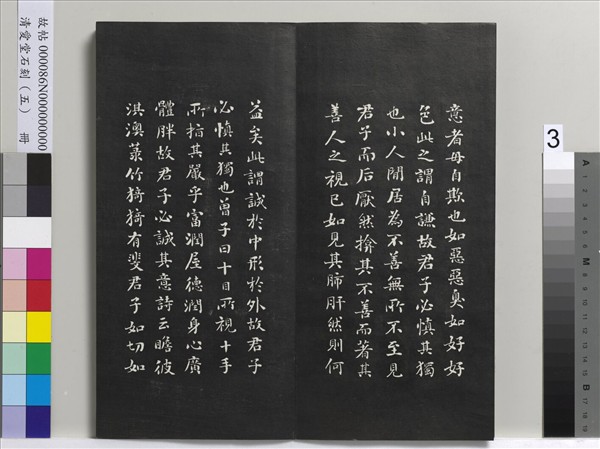 意者毋自欺也如惡惡臭如好好
色此之謂自謙故君子必慎其獨
也小人閒居為不善無所不至見
君子而后厭然揜其不善而著其
善人之視己如見其肺肝然則何
益矣此謂誠於中形於外故君子
必慎其獨也曾子曰十目所視十手
所指其嚴乎富潤屋德潤身心廣
體胖故君子必誠其意詩云瞻彼
淇澳菉竹猗猗有斐君子如切如
故帖 000086N000000000
清愛堂石刻（五） 冊
3
A
M
B